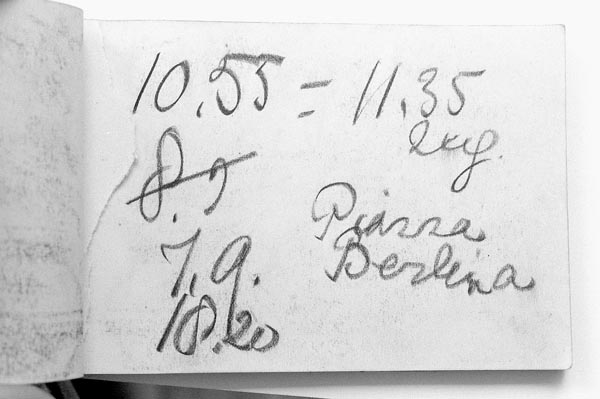 10.55 = 11.35
2 kg.
8.9
7.9.
18.20
Piazza
Berlina